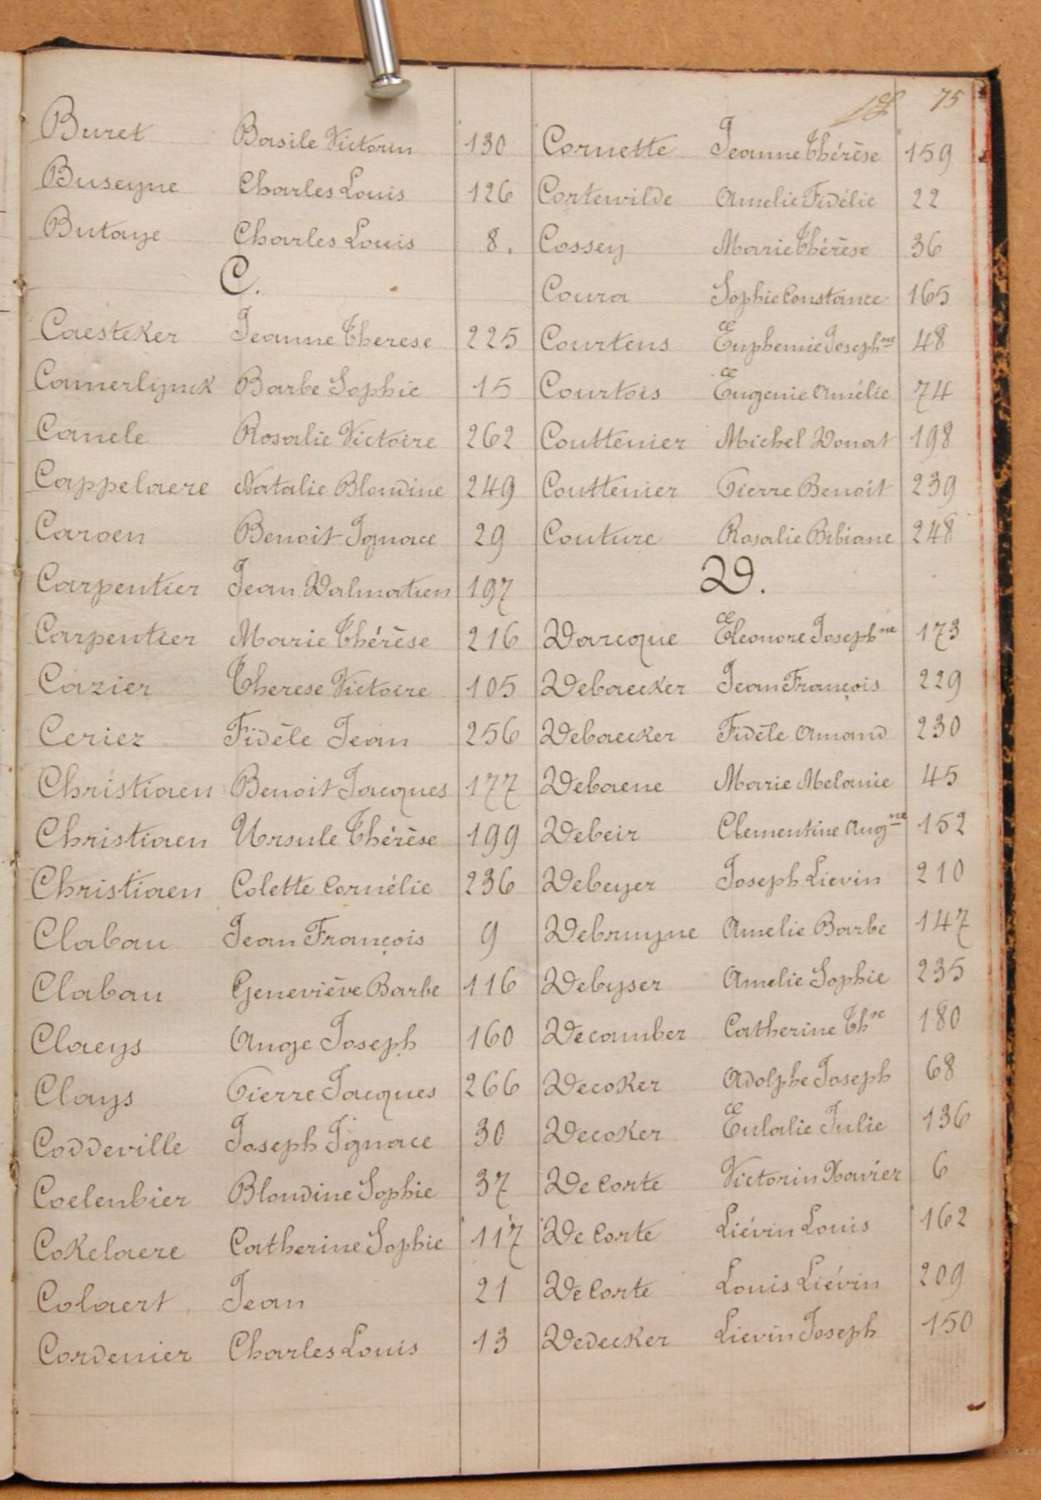 75
Buret Basile Victorin 130
Buseyne Charles Louis 126
Butaye Charles Louis 8.
C.
Caesteker Jeanne Therese 225
Camerlynck Barbe Sophie 15
Canele Rosalie Victoire 262
Cappelaere Natalie Blondine 249
Caroen Benoit Ignace 29
Carpentier Jean Dalmatien 197
Carpentier Marie Thérèse 216
Cazier Therese Victoire 105
Ceriez Fidèle Jean 256
Christiaen Benoit Jacques 177
Christiaen Ursule Thérèse 199
Christiaen Colette Cornélie 236
Clabau Jean François 9
Clabau Geneviève Barbe 116
Claeys Ange Joseph 160
Clays Pierre Jacques 266
Coddeville Joseph Ignace 30
Coelenbier Blondine Sophie 37
Cokelaere Catherine Sophie 117
Colaert Jean 21
Cordenier Charles Louis 13
Cornette Jeanne Thérèse 159
Cortewilde Amelie Fidélie 22
Cossey Marie Thérèse 36
Coura Sophie Constance 165
Courtens Euphemie Josephne 48
Courtois Eugenie Amélie 74
Couttenier Michel Donat 198
Couttenier Pierre Benoit 239
Couture Rosalie Bibiane 248
D.
Darcque Eleonore Josephne 173
Debaecker Jean François 229
Debaecker Fidèle Amand 230
Debaene Marie Melanie 45
Debeir Clementine Augne 152
Debeyer Joseph Lievin 210
Debruyne Amelie Barbe 147
Debyser Amelie Sophie 235
Decamber Catherine Thse 180
Decoker Adolphe Joseph 68
Decoker Eulalie Julie 136
De Corte Victorin Xavier 6
De Corte Liévin Louis 162
De Corte Louis Liévin 209
Dedecker Lievin Joseph 150